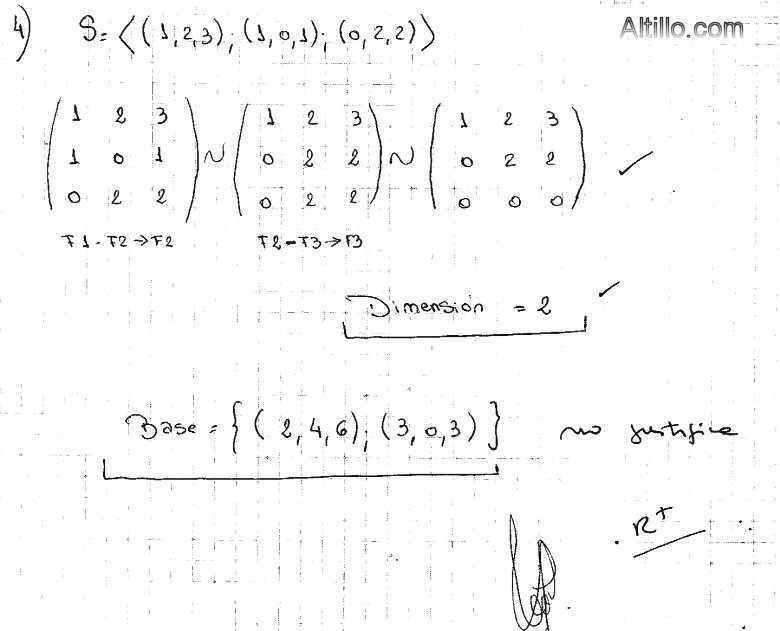 4) S = ⟨(1,2,3); (1,0,1); (0,2,2)⟩
Altillo.com
1 2 3
1 0 1
0 2 2
~
1 2 3
0 2 2
0 2 2
~
1 2 3
0 2 2
0 0 0
✓
F1 - F2 → F2
F2 - F3 → F3
Dimensión = 2 ✓
Base = {(2,4,6); (3,0,3)} no justifica
R+